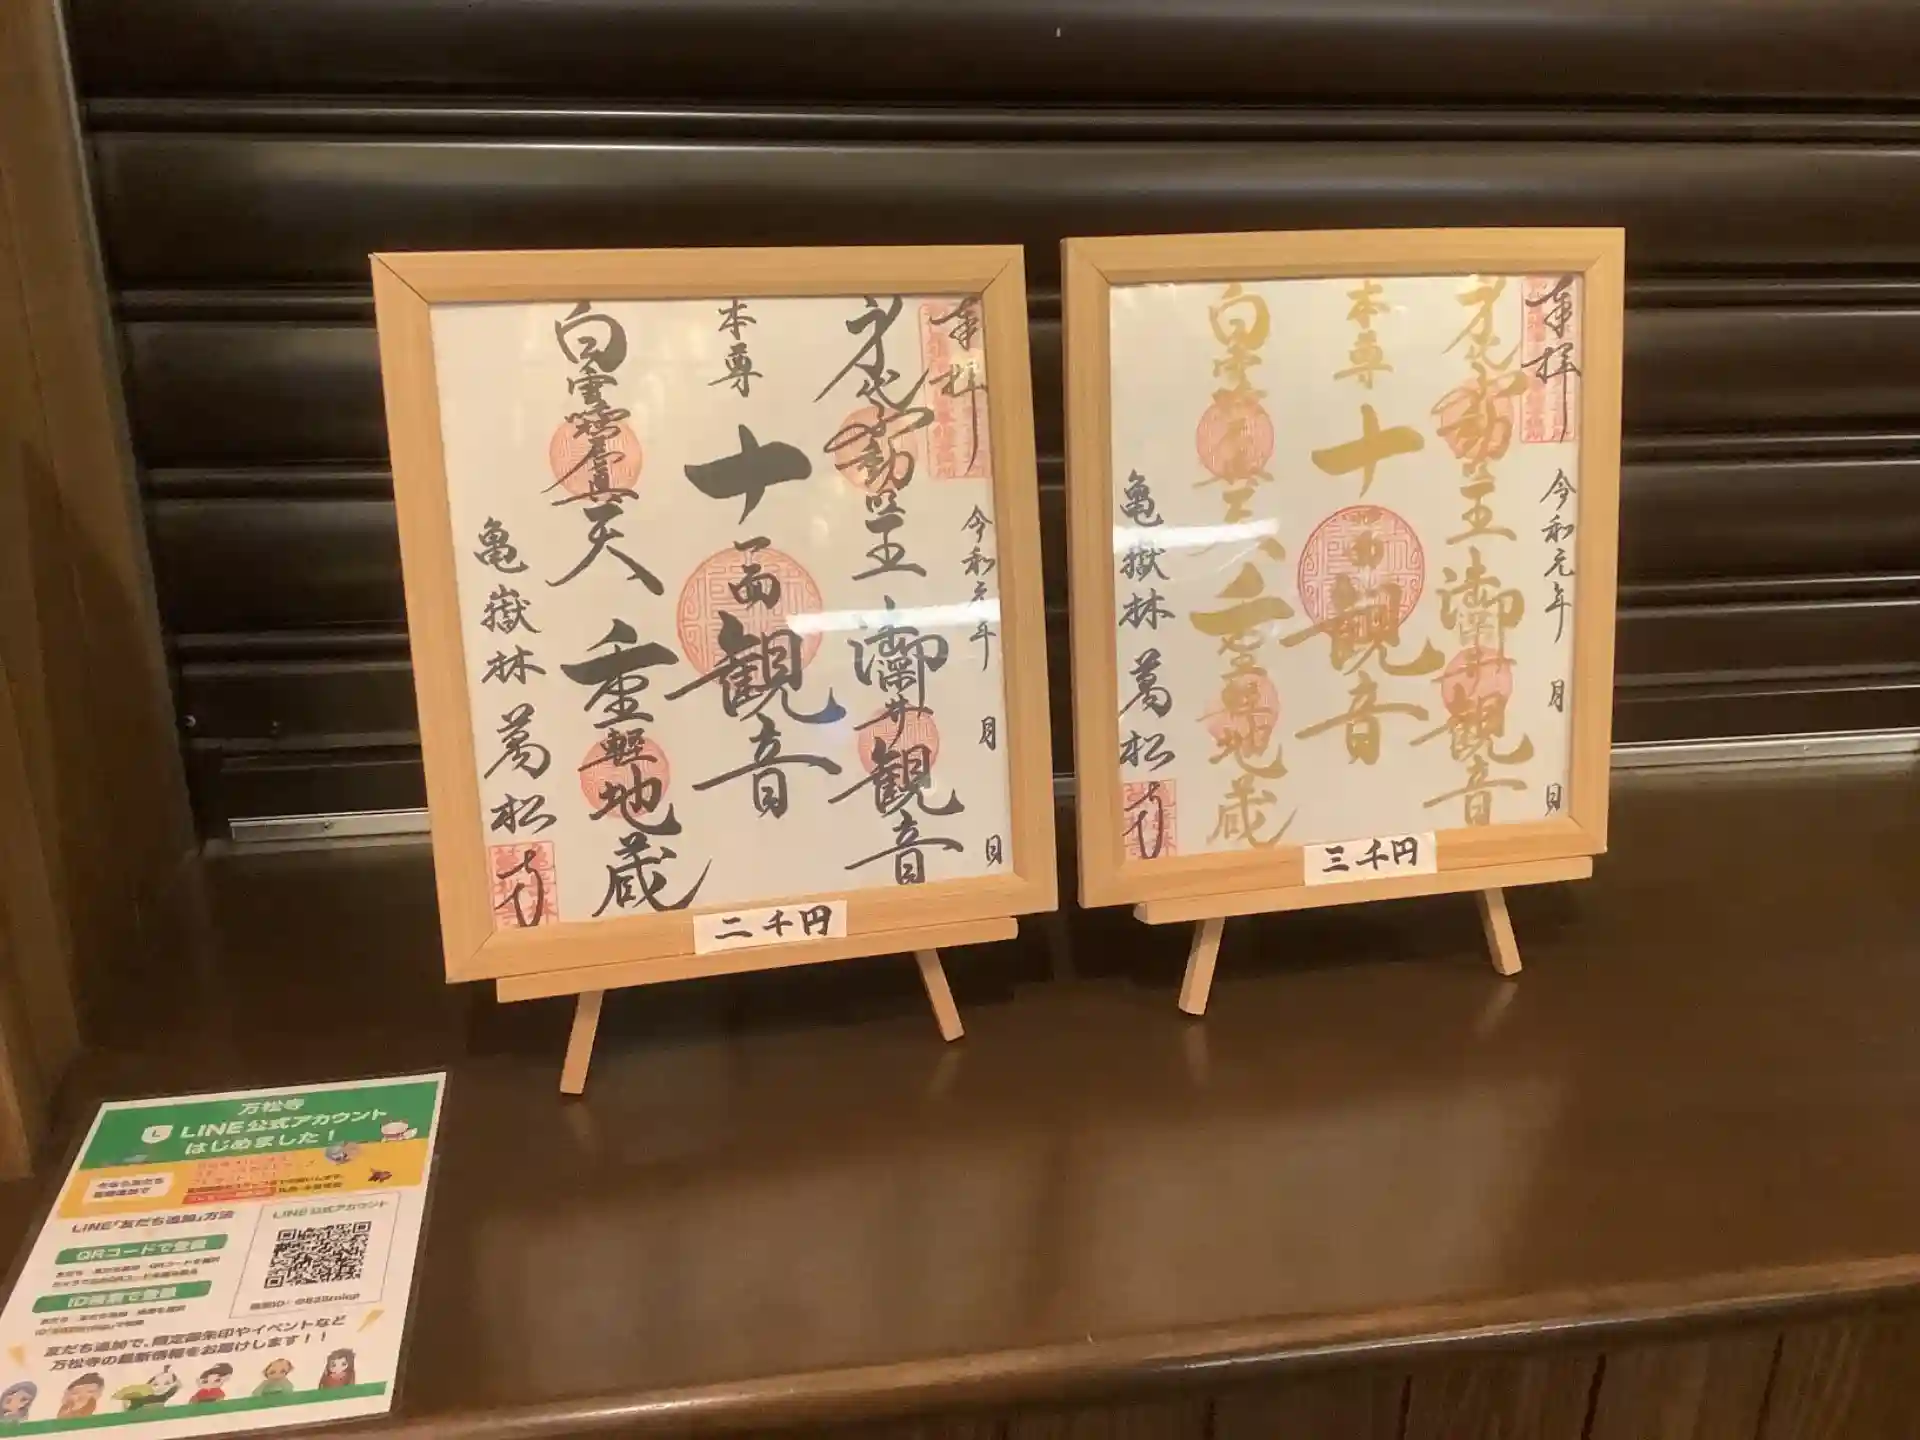 奉拝
令和元年 月 日
身代不動明王
御井観音
本尊
十一面観音
白雪稲荷眞天
重軽地蔵
亀嶽林
萬松寺
二千円
奉拝
令和元年 月 日
身代不動明王
本尊
十一面観音
重軽地蔵
亀嶽林
萬松寺
三千円
万松寺
LINE公式アカウント
はじめました!
LINE「友だち追加」方法
QRコードで登録
ID検索で登録
LINE公式アカウント
友だち追加で、限定御朱印やイベントなど
万松寺の最新情報をお届けします!!